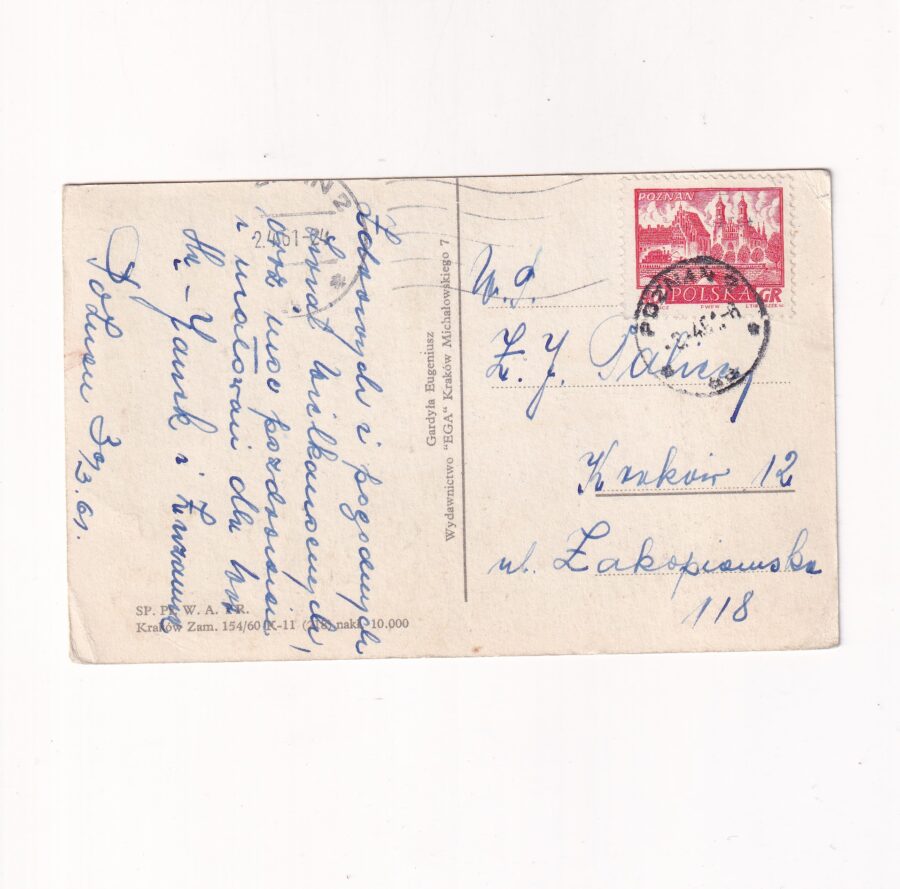 Zdrowych i pogodnych
Świąt Wielkanocnych,
oraz moc pozdrowień
i uścisków dla Was
śle - Janek i Zuzanna
Poznań 30.3.61.
2.4.61
Gardyła Eugeniusz
Wydawnictwo "EGA" Kraków Michałowskiego 7
SP. PR. W. A. KR.
Kraków Zam. 154/60 K-11 (218) nakł. 10.000
POZNAŃ
POLSKA
GR
POZNAŃ 2
W.P.
Z. J.
Kraków 12
ul. Zakopiańska
118